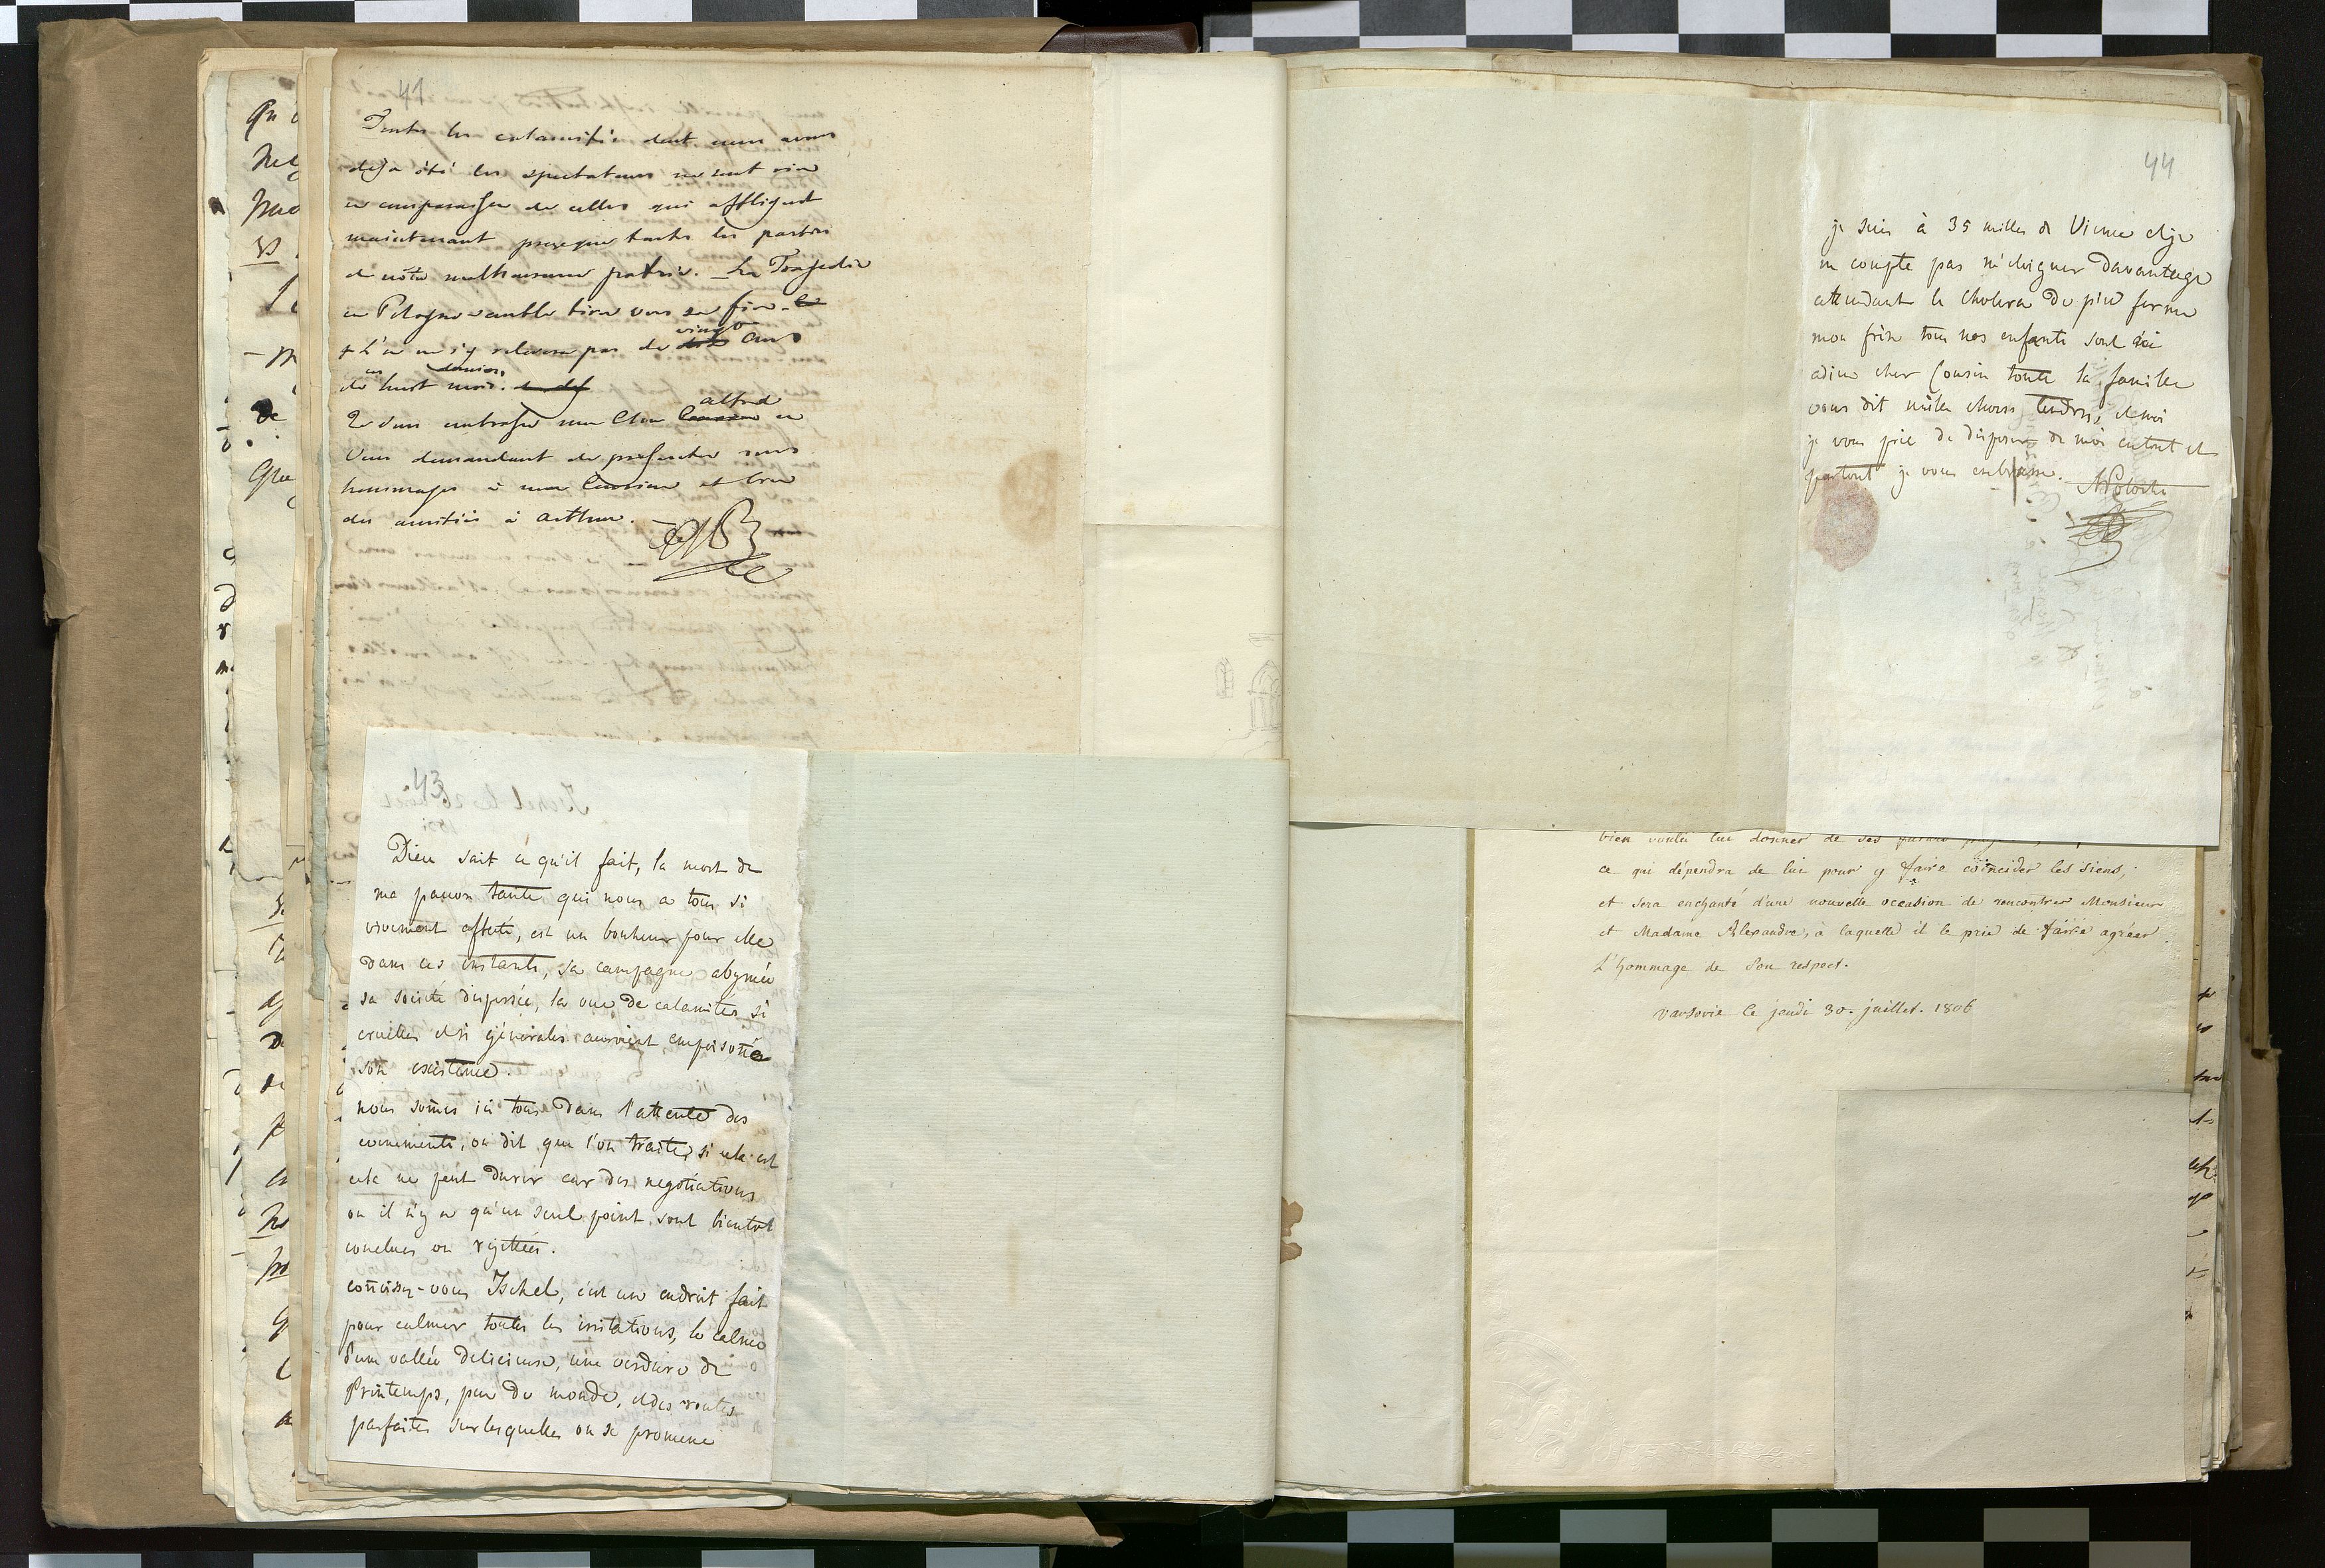 41
Toutes les calamités dont nous avons
déjà été les spectateurs ne sont rien
en comparaison de celles qui affligent
maintenant presque toutes les parties
de notre malheureuse patrie. La Tragedie
en Pologne semble tirer vers sa fin
& l'on ne s'y relevera pas de vingt ans
de ces huit derniers mois.
Je vous embrasse mon Cher alfred en
Vous demandant de presenter mes
hommages à ma Cousine et bien
des amitiés à arthur.
43
Dieu sait ce qu'il fait, la mort de
ma pauvre tante qui nous a tous si
vivement affecté, est un bonheur pour elle
dans ces instants, sa campagne abymée
sa société dispersée, la vue de calamites si
cruelles et si générales auroient empoisoñé
son existence.
nous som̃es ici tous dans l'attente des
evenements, on dit que l'on traite, si cela est
cela ne peut durer car des negotiations
ou il n'y a qu'un seul point sont bientot
conclues ou rejettées.
coñoissez-vous Ischel, c'est un endroit fait
pour calmer toutes les irritations, le calme
d'une vallée delicieuse, une verdure de
Printemps, peu de monde, et des routes
parfaites sur lesquelles on se promene
44
je suis à 35 milles de Vienne et je
ne compte pas m'eloigner davantage
attendant le cholera de pied ferme
mon frère tous nos enfants sont ici
adieu cher Cousin toute la famille
vous dit mille choses tendres, et moi
je vous prie de disposer de moi en tout et
partout je vous embrasse. Potocki
bien vouloir lui donner de ses
ce qui dépendra de lui pour y faire coïncider les siens,
et sera enchanté d'une nouvelle occasion de rencontrer Monsieur
et Madame Alexandre, à laquelle il le prie de faire agréer
L'hommage de Son respect.
Varsovie le jeudi 30. juillet. 1806